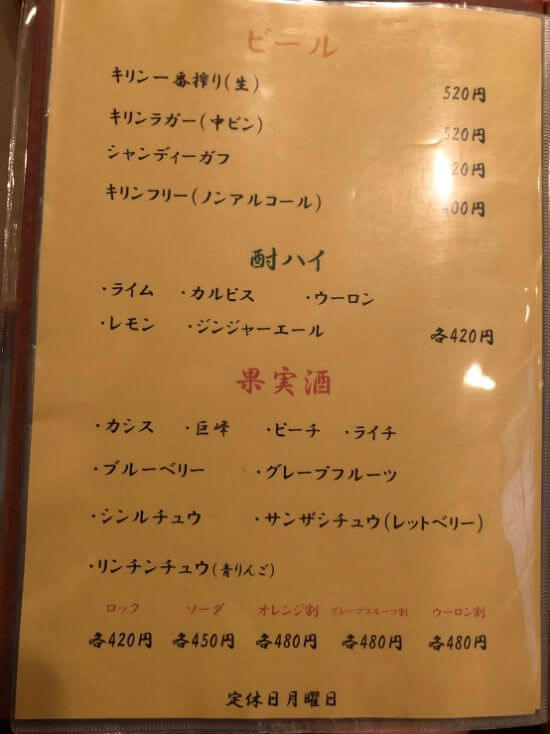 ビール
キリン一番搾り(生) 520円
キリンラガー(中ビン) 520円
シャンディーガフ 20円
キリンフリー(ノンアルコール) 400円
酎ハイ
・ライム ・カルピス ・ウーロン
・レモン ・ジンジャーエール 各420円
果実酒
・カシス ・巨峰 ・ピーチ ・ライチ
・ブルーベリー ・グレープフルーツ
・シンルチュウ ・サンザシチュウ(レットベリー)
・リンチンチュウ(青りんご)
ロック ソーダ オレンジ割 グレープフルーツ割 ウーロン割
各420円 各450円 各480円 各480円 各480円
定休日月曜日